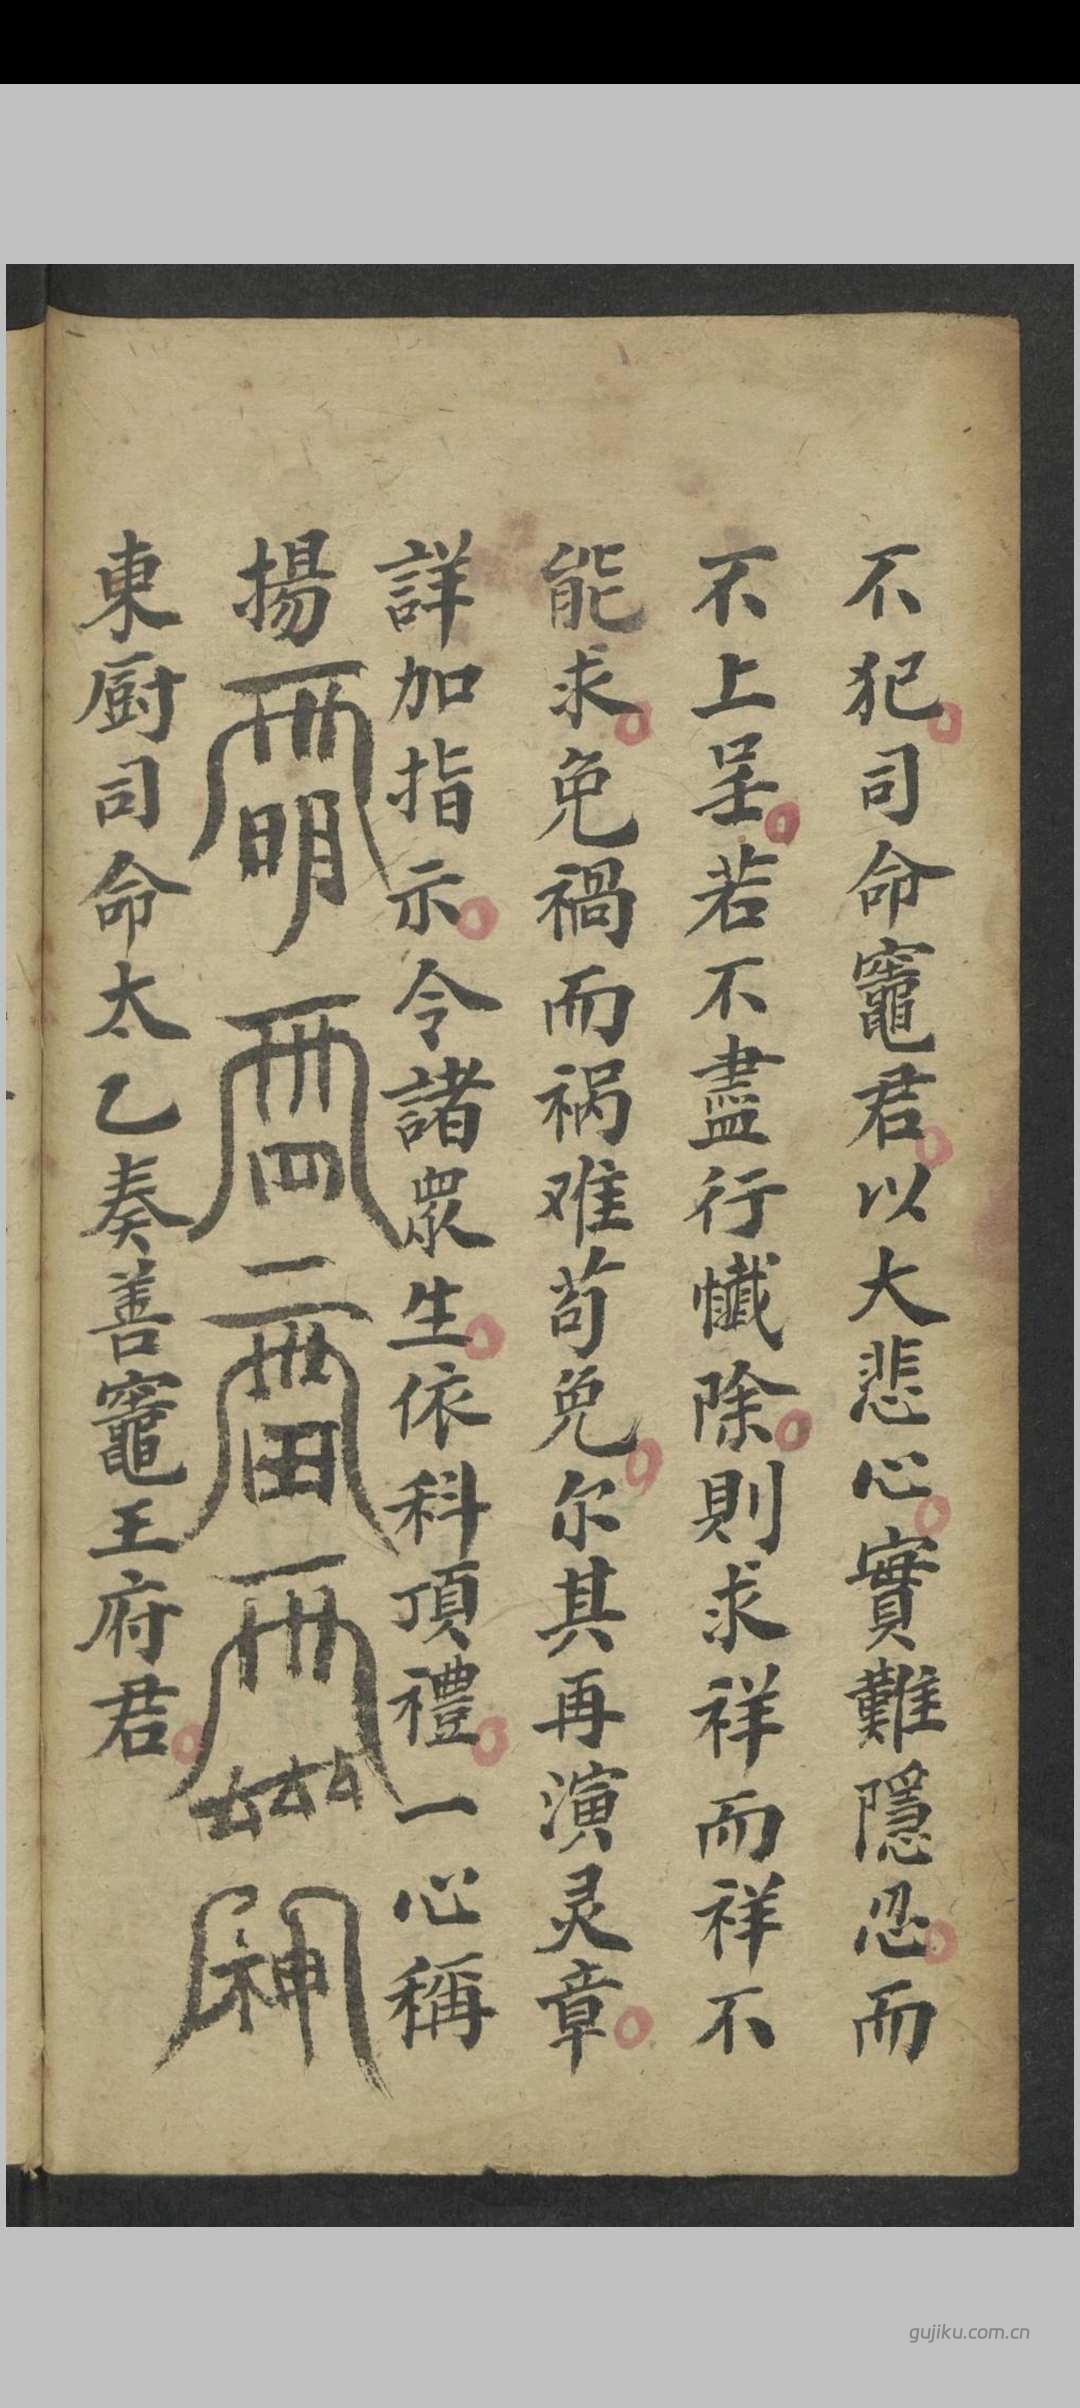 不犯司命竈君以大悲心實難隱忍而
不上呈若不盡行懺除則求祥而祥不
能求免禍而祸难苟免尔其再演灵章
詳加指示令諸眾生依科頂禮一心稱
揚
東厨司命太乙奏善竈王府君
gujiku.com.cn